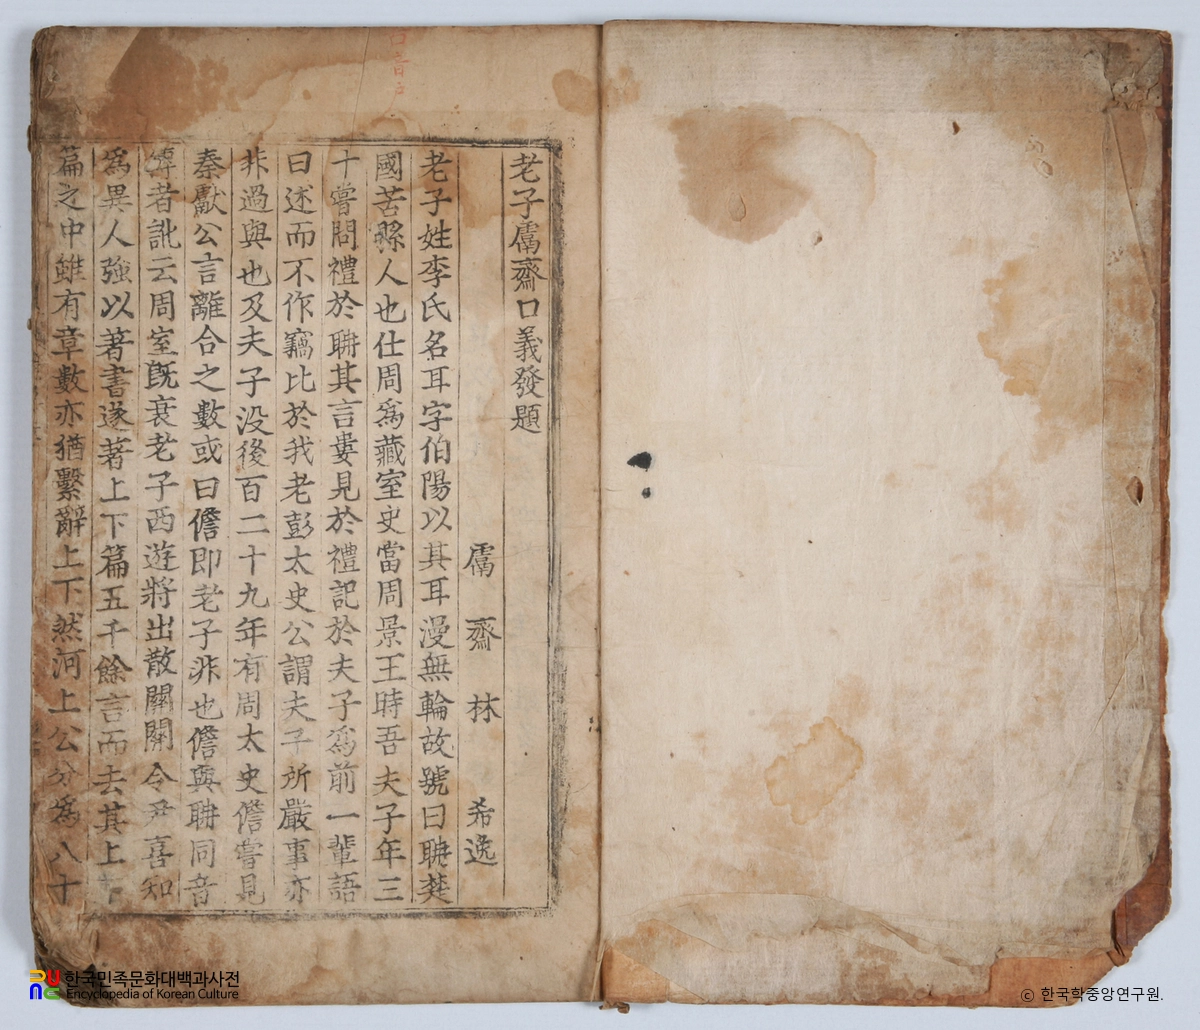 老子鬳齋口義發題
鬳齋林希逸
老子姓李氏名耳字伯陽以其耳漫無輪故號曰耼楚
國苦縣人也仕周爲藏室史當周景王時吾夫子年三
十嘗問禮於耼其言婁見於禮記於夫子爲前一輩語
曰述而不作竊比於我老彭太史公謂夫子所嚴事亦
非過與也及夫子没後百二十九年有周太史儋嘗見
秦獻公言離合之數或曰儋即老子非也儋與耼同音
傳者訛云周室旣衰老子西遊將出散關關令尹喜知
爲異人強以著書遂著上下篇五千餘言而去其上下
篇之中雖有章數亦猶繫辭上下然河上公分爲八十
한국민족문화대백과사전
Encyclopedia of Korean Culture
ⓒ 한국학중앙연구원.